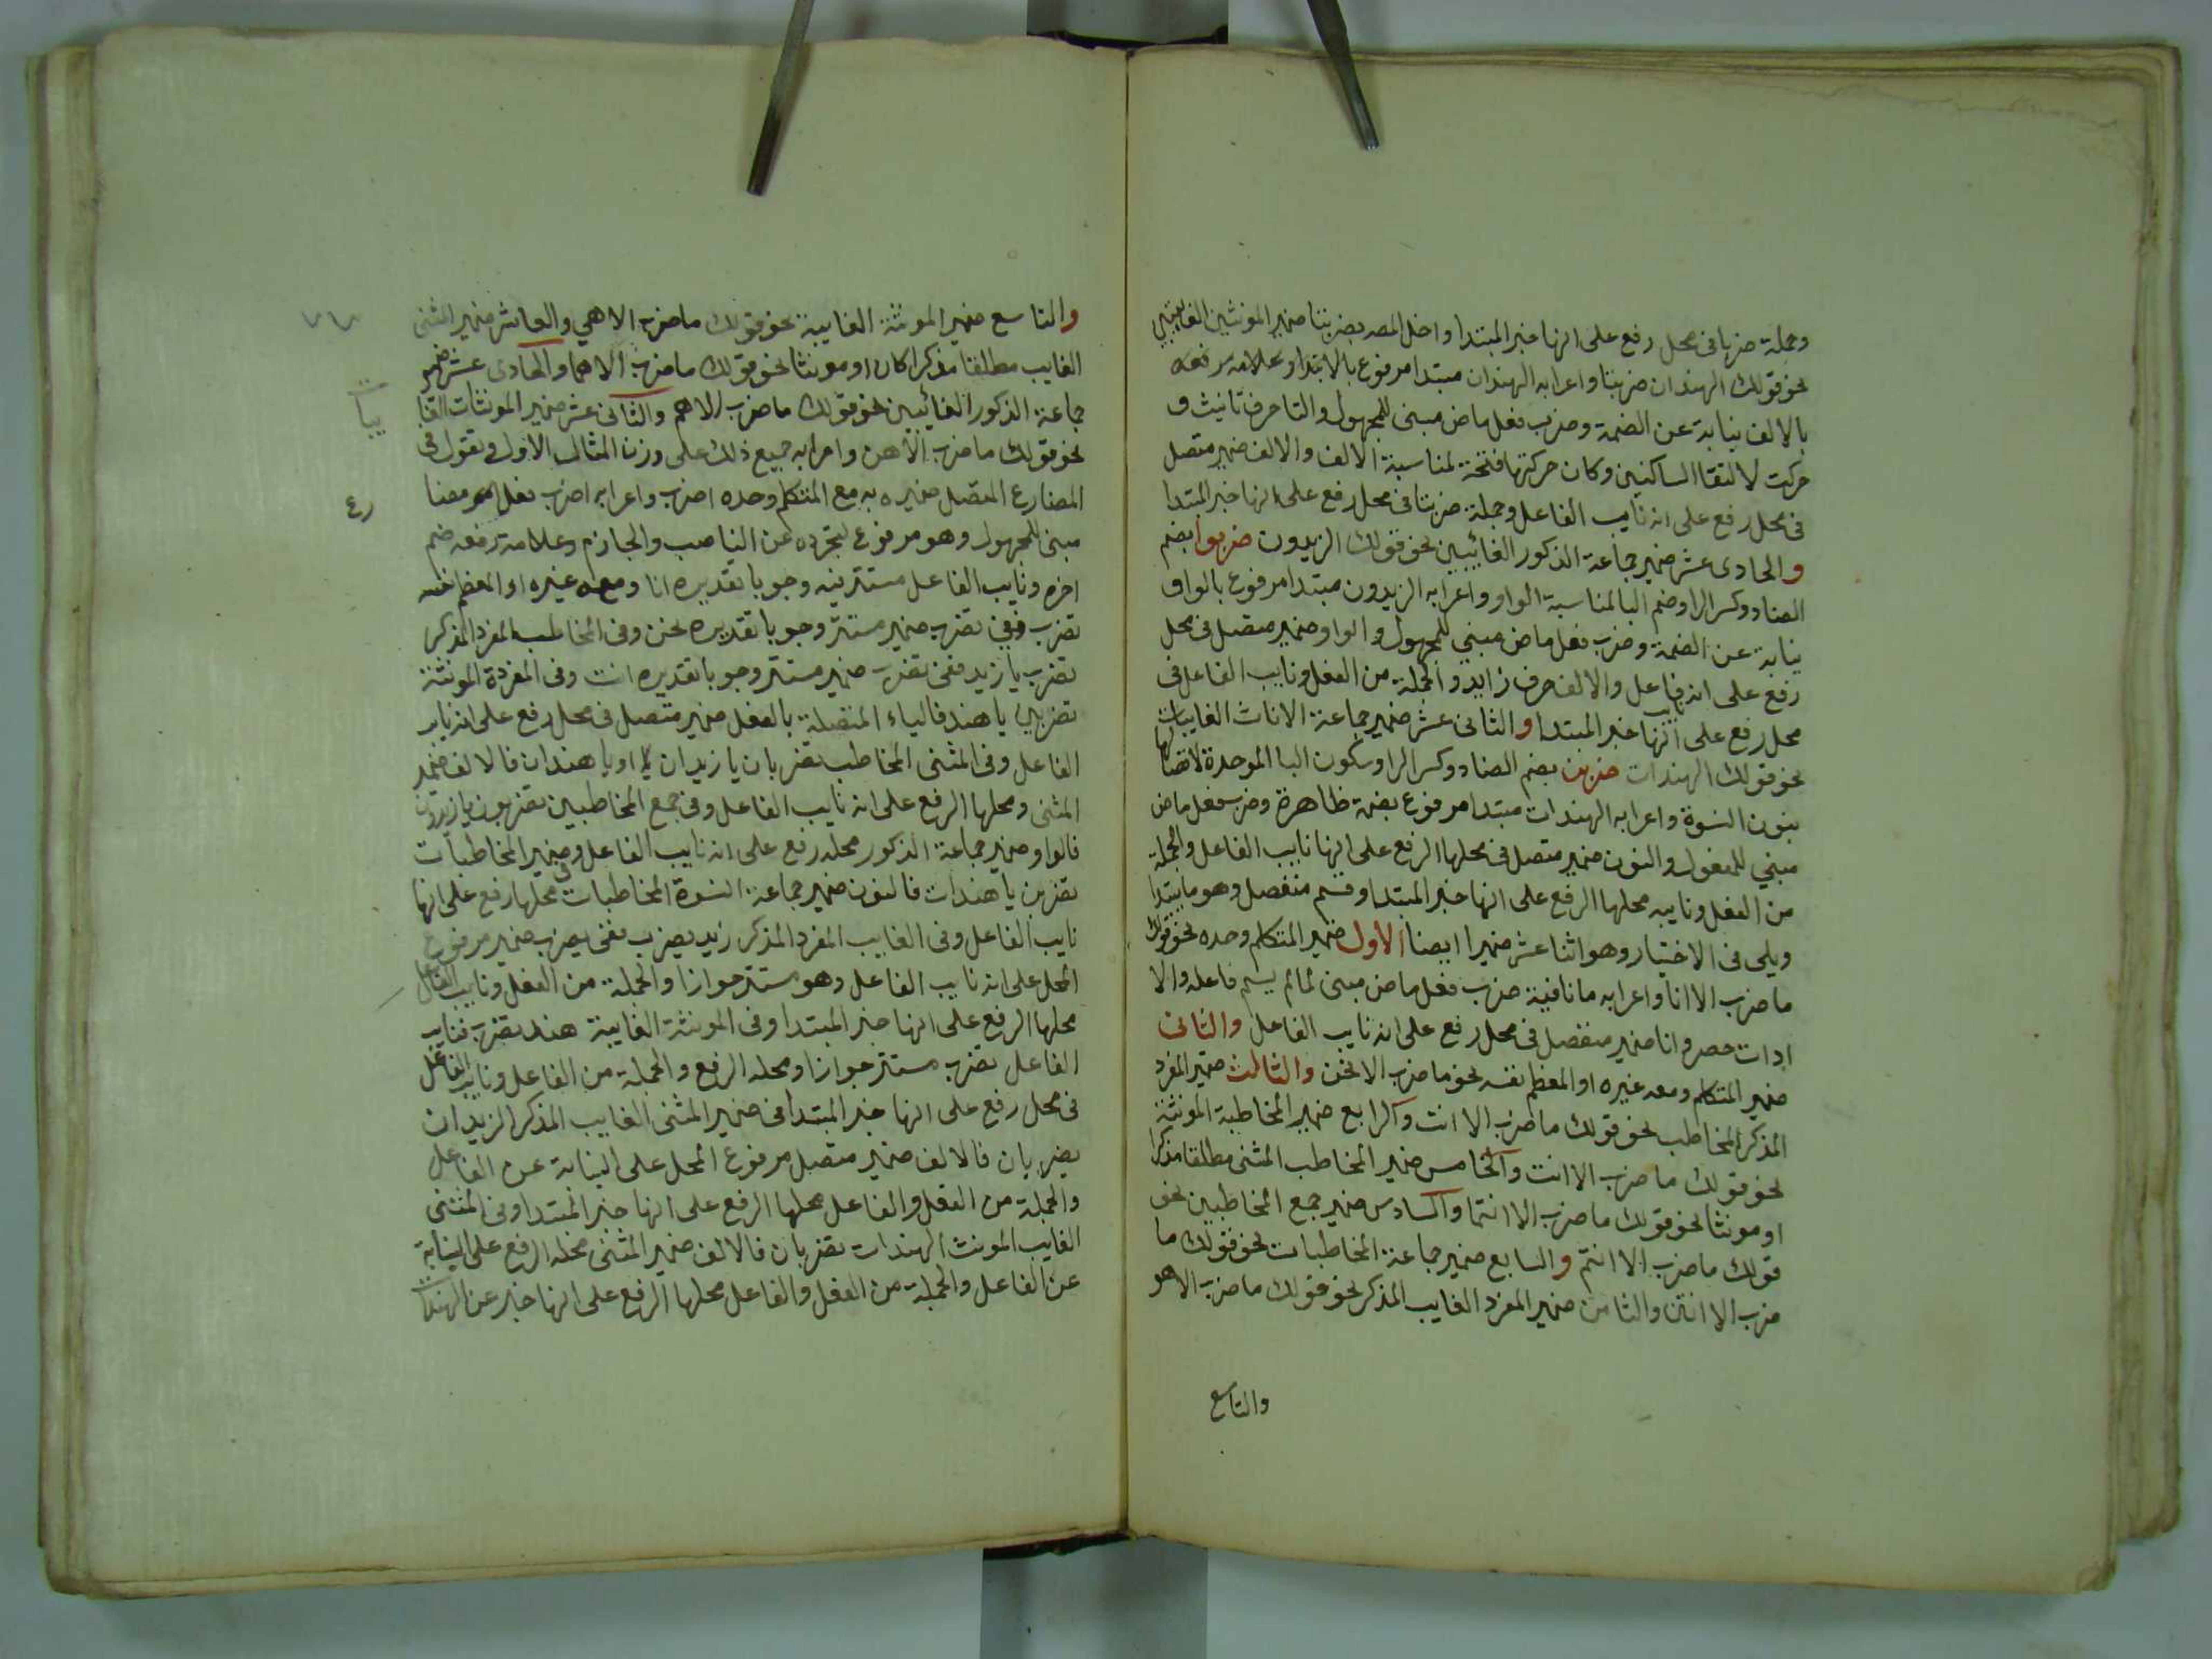 وجملة ضربا في محل رفع على انها خبر المبتدا واخل المصه بضربتا ضمير المونثين الغايبتين
نحو قولك الهندان ضربتا واعرابه الهندان مبتدا مرفوع بالابتدا وعلامه رفعه
بالالف نيابة عن الضمة وضرب فعل ماض مبنى للمجهول والتا حرف تانيث و
حركت لالتقا الساكنين وكان حركتها فتحة لمناسبة الالف والالف ضمير متصل
في محل رفع على انه نايب الفاعل وجملة ضربتا في محل رفع على انها خبر المبتدا
والحادى عشر ضمير جماعة الذكور الغائبين نحو قولك الزيدون ضربوا بضم
الضاد وكسر الرا وضم البا لمناسبة الواو واعرابه الزيدون مبتدا مرفوع بالواو
نيابة عن الضمة وضرب فعل ماض مبني للمجهول والواو ضمير متصل في محل
رفع على انه نايب فاعل والالف حرف زايد والجملة من الفعل ونايب الفاعل في
محل رفع على انها خبر المبتدا والثانى عشر ضمير جماعة الاناث الغايبات
نحو قولك الهندات ضربن بضم الضاد وكسر الرا وسكون البا الموحدة لاتصالها
بنون النسوة واعرابه الهندات مبتدا مرفوع بضمة ظاهرة وضرب فعل ماض
مبني للمفعول والنون ضمير متصل في محلها الرفع على انها نايب الفاعل والجملة
من الفعل ونايبه محلها الرفع على انها خبر المبتدا وقسم منفصل وهو ما يبتدا
ويلى في الاختيار وهو اثنا عشر ضميرا ايضا الاول ضمير المتكلم وحده نحو قولك
ما ضرب الا انا واعرابه ما نافية ضرب فعل ماض مبنى لما لم يسم فاعله والا
ادات حصر وانا ضمير منفصل في محل رفع على انه نايب الفاعل والثانى
ضمير المتكلم ومعه غيره او المعظم نفسه نحو ما ضرب الا نحن والثالث ضمير المفرد
المذكر المخاطب نحو قولك ما ضرب الا انت والرابع ضمير المخاطبة المونثة
نحو قولك ما ضرب الا انت والخامس ضمير المخاطب المثنى مطلقا مذكرا
او مونثا نحو قولك ما ضرب الا انتما والسادس ضمير جمع المخاطبين نحو
قولك ما ضرب الا انتم والسابع ضمير جماعة المخاطبات نحو قولك ما
ضرب الا انتن والثامن ضمير المفرد الغايب المذكر نحو قولك ما ضرب الا هو
والتاسع
والتاسع ضمير المونثة الغايبة نحو قولك ما ضرب الا هي والعاشر ضمير المثنى
الغايب مطلقا مذكرا كان او مونثا نحو قولك ما ضرب الا هما والحادى عشر ضمير
جماعة الذكور الغائبين نحو قولك ما ضرب الا هم والثانى عشر ضمير المونثات الغا
يبات
نحو قولك ما ضرب الا هن واعرابه جميع ذلك على وزن المثال الاول وتقول في
المضارع المتصل ضميره به مع المتكلم وحده اضرب واعرابه اضرب فعل مضا
رع
مبنى للمجهول وهو مرفوع لتجرده عن الناصب والجازم وعلامة رفعه ضم
اخره ونايب الفاعل مستتر فيه وجوبا تقديره انا ومعه غيره او المعظم نفسه
نضرب ففي نضرب ضمير مستتر وجوبا تقديره نحن وفى المخاطب المفرد المذكر
تضرب يا زيد ففى تضرب ضمير مستتر وجوبا تقديره انت وفى المفردة المونثة
تضربين يا هند فالياء المتصلة بالفعل ضمير متصل في محل رفع على انه نايب
الفاعل وفى المثنى المخاطب تضربان يا زيدان او يا هندان فالالف ضمير
المثنى ومحلها الرفع على انه نايب الفاعل وفى جمع المخاطبين تضربون يا زيدون
فالواو ضمير جماعة الذكور محله رفع على انه نايب الفاعل وفى ضمير المخاطبات
تضربن يا هندات فالنون ضمير جماعة النسوة المخاطبات محلها رفع على انها
نايب الفاعل وفى الغايب المفرد المذكر زيد يضرب ففى يضرب ضمير مرفوع
المحل على انه نايب الفاعل وهو مستتر جوازا والجملة من الفعل ونايب الفاعل
محلها الرفع على انها خبر المبتدا وفى المونثة الغايبة هند تضرب فنايب
الفاعل تضرب مستتر جوازا ومحله الرفع والجملة من الفاعل ونايب الفاعل
في محل رفع على انها خبر المبتدا فى ضمير المثنى الغايب المذكر الزيدان
يضربان فالالف ضمير متصل مرفوع المحل على النيابة عن الفاعل
والجملة من الفعل والفاعل محلها الرفع على انها خبر المبتدا وفى المثنى
الغايب المونث الهندات تضربان فالالف ضمير المثنى محله الرفع على النيابة
عن الفاعل والجملة من الفعل والفاعل محلها الرفع على انها خبر عن الهندات